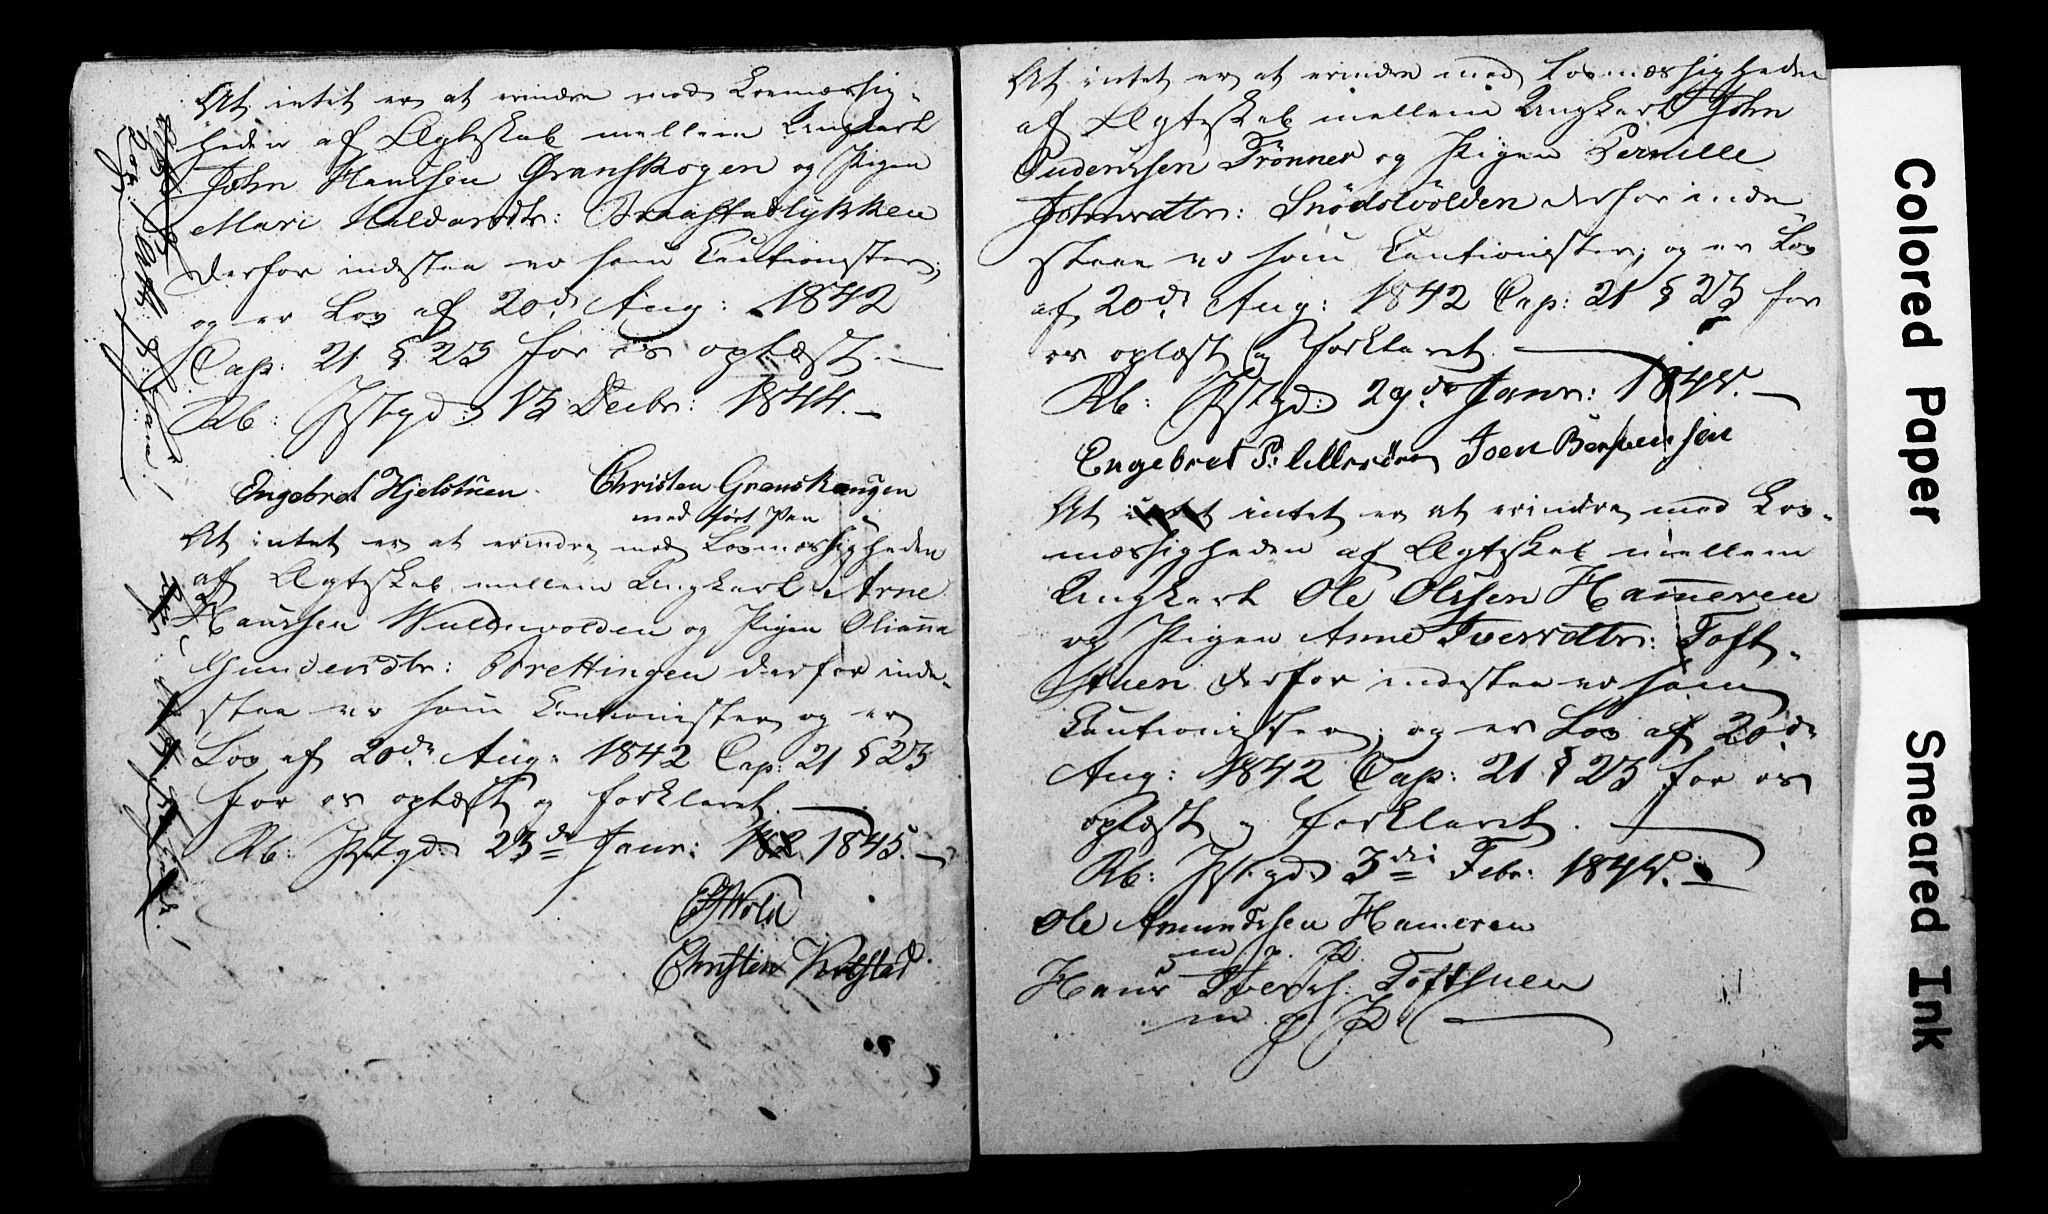 At intet er at erindre mod Lovmæssig-
heden af Ægteskab mellem Ungkarl
John Hansen Granskogen og Pigen
Mari Haldorsdtr: Braastadlykken
derfor indestaa vi som Cautionister,
og er Lov af 20d. Aug: 1842
Cap: 21 § 23 for os oplæst.
Rb: Pstgd: 15 Decbr: 1844.
Engebret Hjelstuen. Christen Granskaugen
med ført Pen
At intet er at erindre mod Lovmæssigheden
af Ægteskab mellem Ungkarl Arne
Hanssen og Pigen Olianna
Gundersdtr: Brettingen derfor inde-
staa vi som Cautionister og er
Lov af 20de Aug: 1842 Cap: 21 § 23
for os oplæst og forklaret.
Rb: Pstgd: 23de Janr: 1845.
Wold
Christen
At intet er at erindre mod Lovmæssigheden
af Ægteskab mellem Ungkarl John
Trønnes og Pigen Pernille
Johnsdtr: derfor inde-
staae vi som Cautionister, og er Lov
af 20de Aug: 1842 Cap: 21 § 23 for
os oplæst og forklaret.
Rb: Pstgd: 29de Janr: 1845.
Engebret P: Joen
At intet er at erindre mod Lov-
mæssigheden af Ægteskab mellem
Ungkarl Ole Olssen Hameren
og Pigen Anne Iversdtr: Toft-
stuen derfor indestaa vi som
Cautionister, og er Lov af 20de
Aug: 1842 Cap: 21 § 23 for os
oplæst og forklaret.
Rb: Pstgd: 3die Febr: 1845.
Ole Amundssen Hameren
m. p. P.
Hans Iversen Toftstuen
m. p. P.
Colored Paper
Smeared Ink